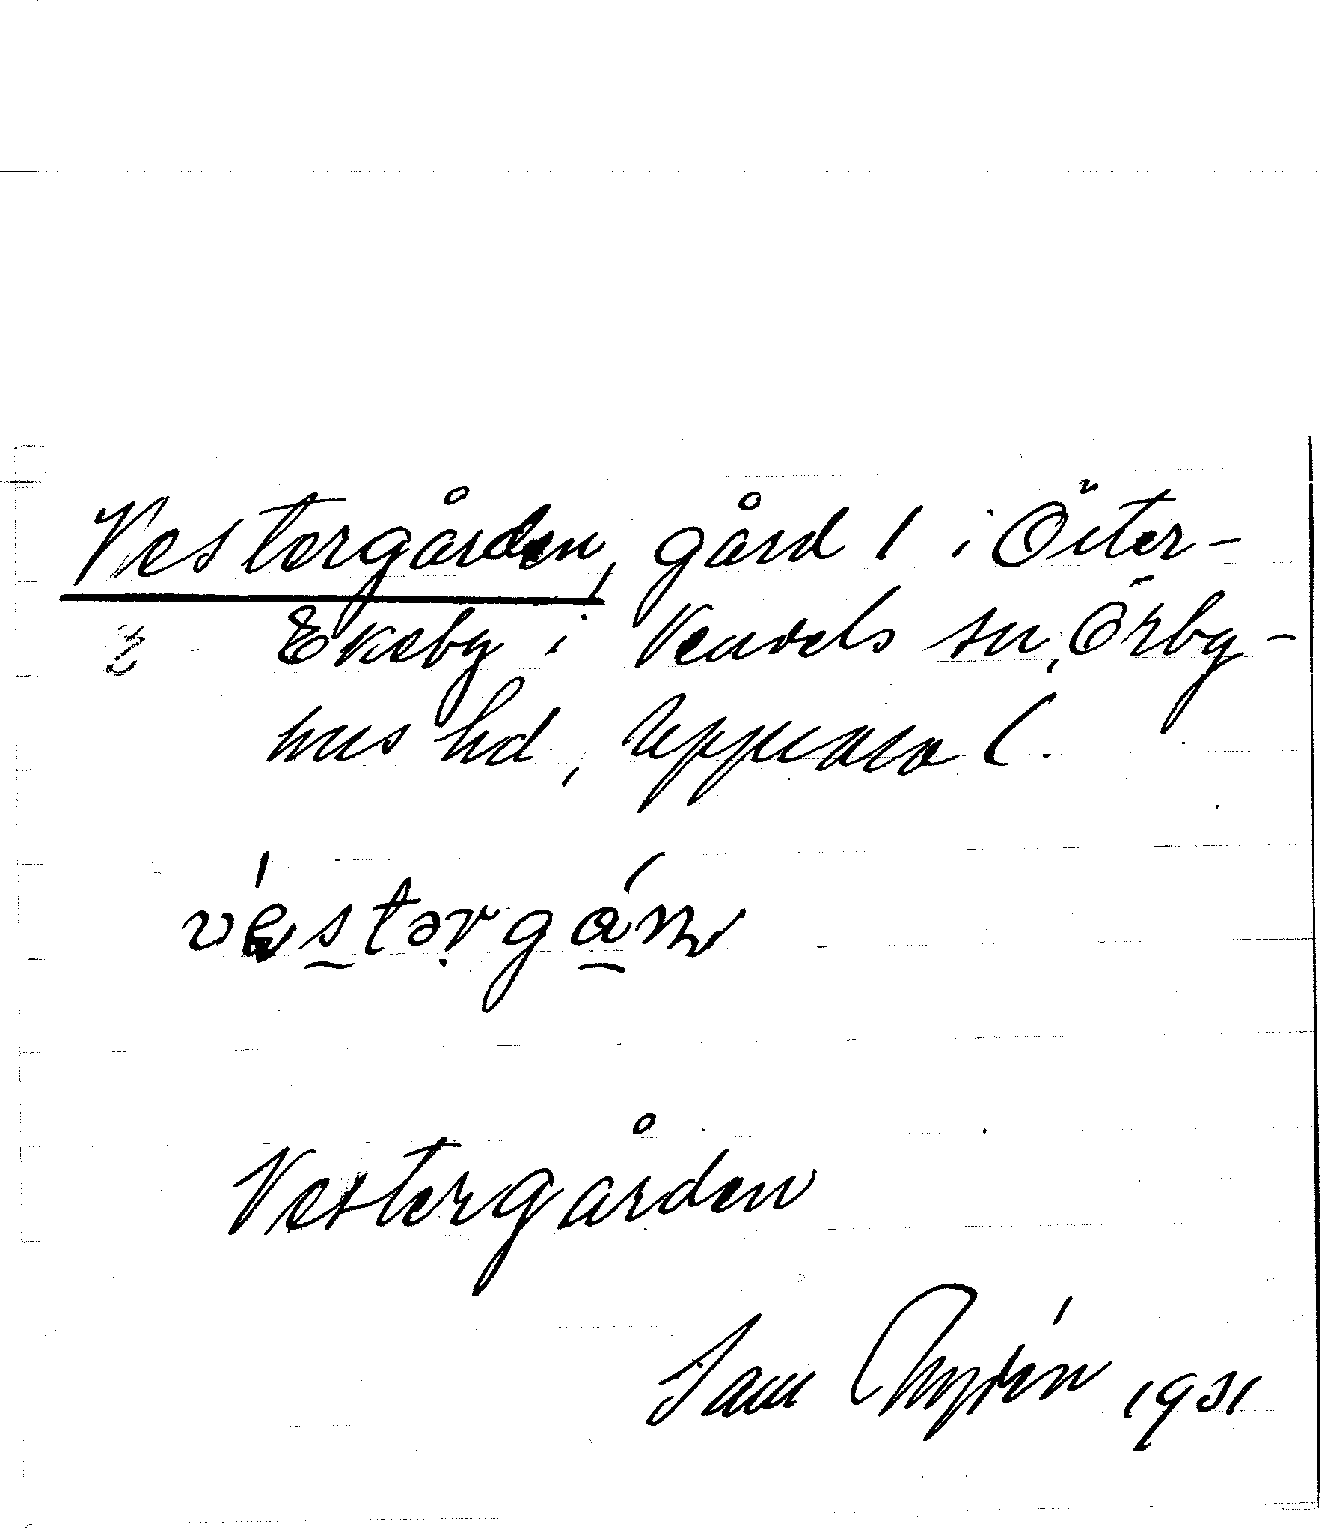 Vestergården, gård 1 i Öster-
Ekeby i Vendels sn, Örby-
hus hd, Uppsala l.
véstərgá̠rn
Vestergården
Sam 1931